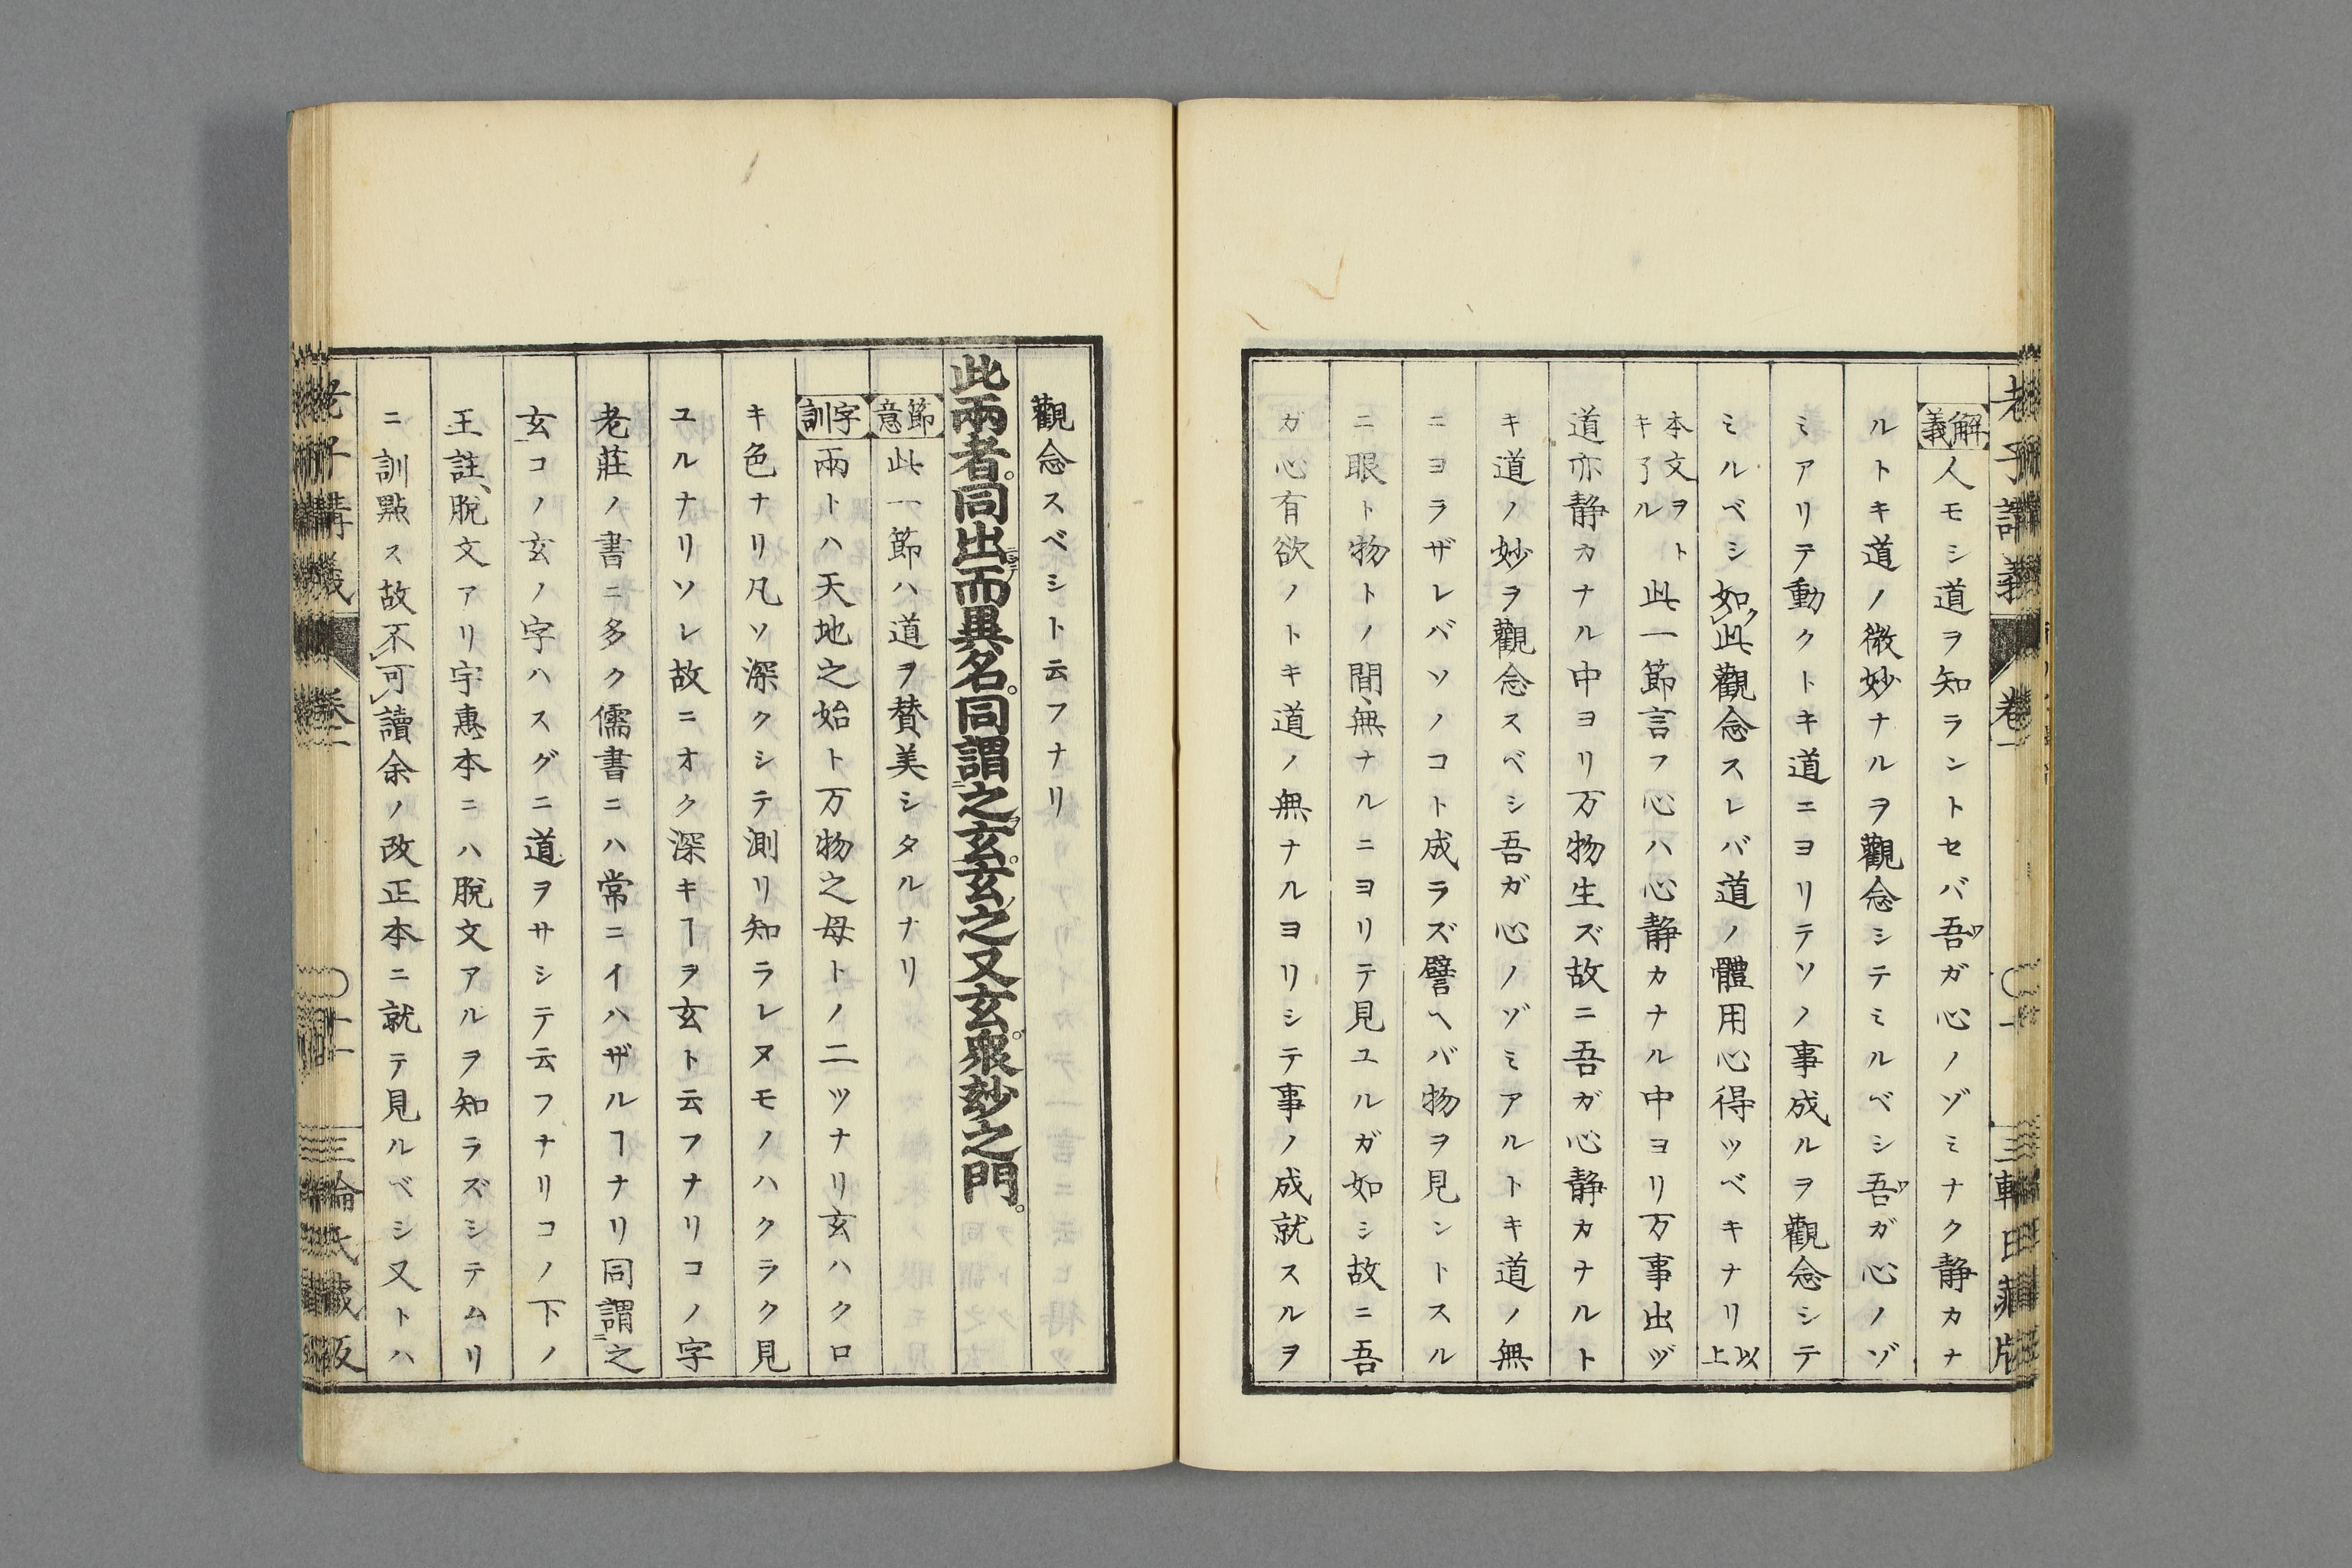 老子講義
卷一
解義 人モシ道ヲ知ラントセバ吾ガ心ノゾミナク静カナ
ルトキ道ノ微妙ナルヲ觀念シテミルベシ吾ガ心ノゾ
ミアリテ動クトキ道ニヨリテソノ事成ルヲ觀念シテ
ミルベシ如此觀念スレバ道ノ體用心得ツベキナリ以上
本文ヲトキ了ル 此一節言フ心ハ心静カナル中ヨリ万事出ヅ
道亦静カナル中ヨリ万物生ズ故ニ吾ガ心静カナルト
キ道ノ妙ヲ觀念スベシ吾ガ心ノゾミアルトキ道ノ無
ニヨラザレバソノコト成ラズ譬ヘバ物ヲ見ントスル
ニ眼ト物トノ間、無ナルニヨリテ見ユルガ如シ故ニ吾
ガ心有欲ノトキ道ノ無ナルヨリシテ事ノ成就スルヲ
觀念スベシト云フナリ
此兩者。同出而異名。同謂之玄。玄之又玄。衆玅之門。
節意 此一節ハ道ヲ賛美シタルナリ
字訓 兩トハ天地之始ト万物之母トノ二ツナリ玄ハクロ
キ色ナリ凡ソ深クシテ測リ知ラレヌモノハクラク見
ユルナリソレ故ニオク深キヿヲ玄ト云フナリコノ字
老莊ノ書ニ多ク儒書ニハ常ニイハザルヿナリ同謂之
玄コノ玄ノ字ハスグニ道ヲサシテ云フナリコノ下ノ
王註、脱文アリ宇惠本ニハ脱文アルヲ知ラズシテムリ
ニ訓點ス故不可讀余ノ改正本ニ就テ見ルベシ又トハ
老子講義
卷一